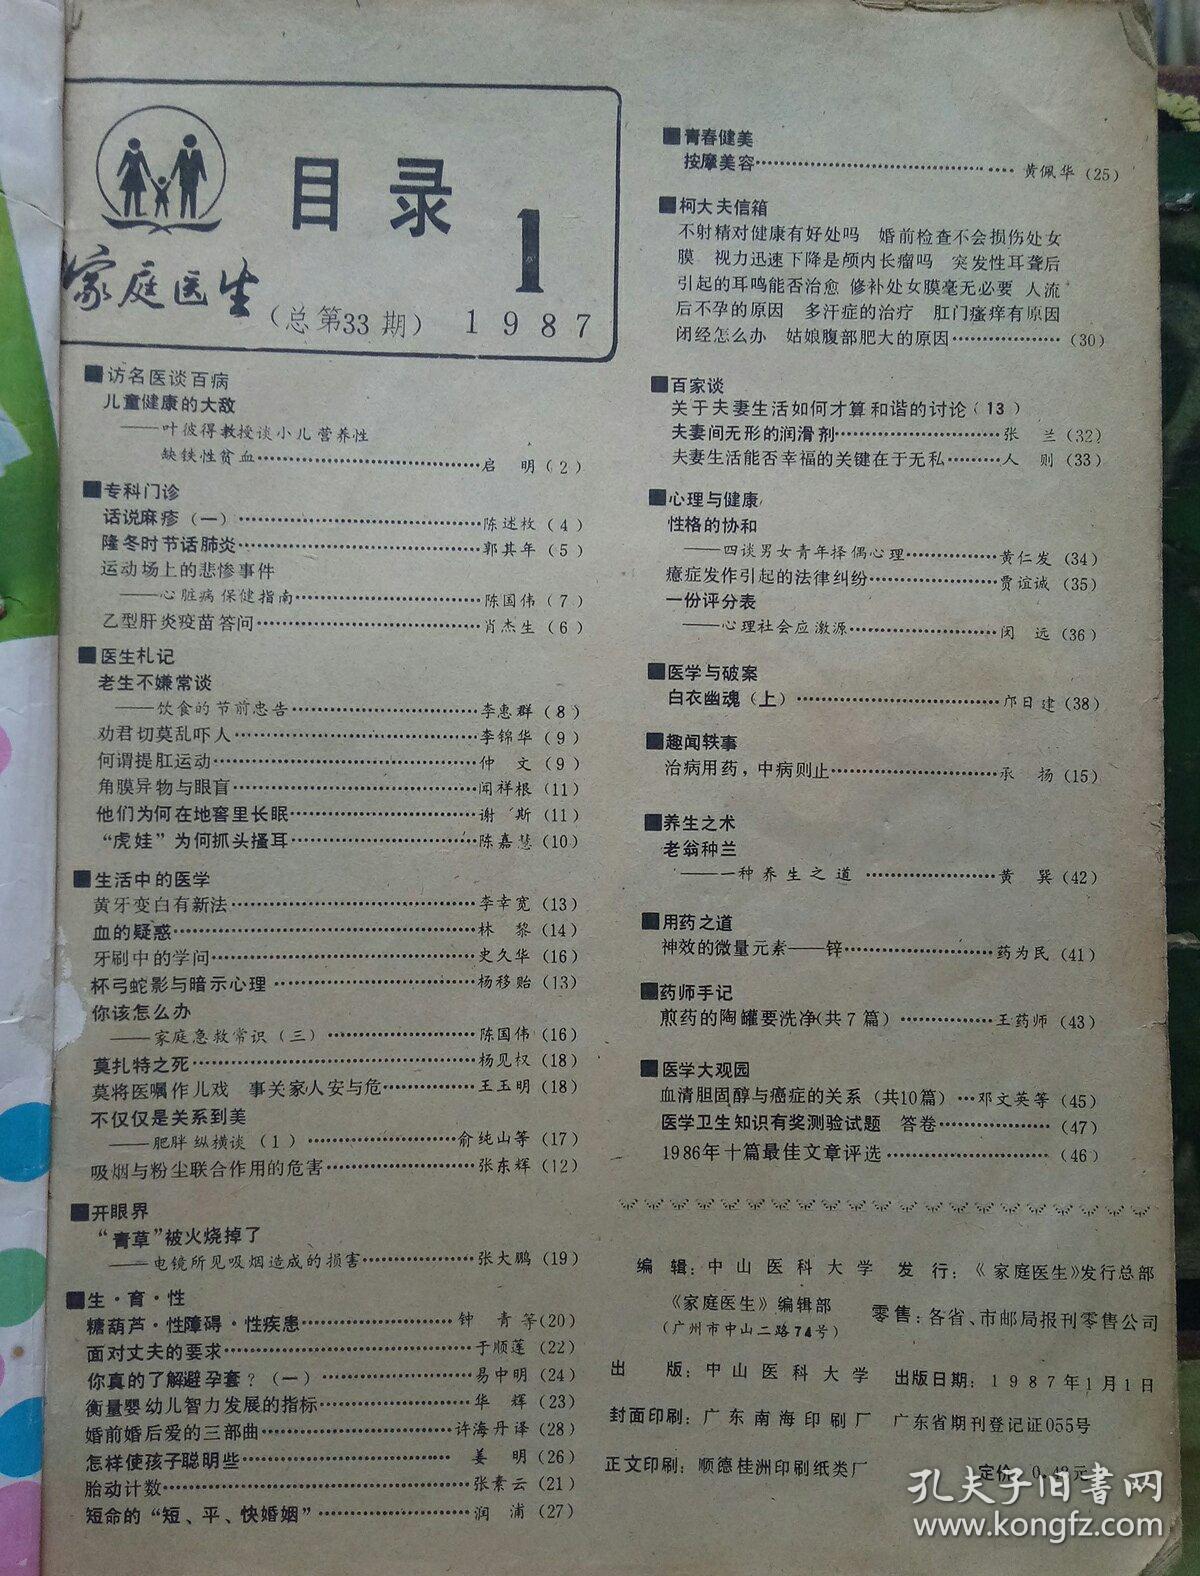 目录
1
家庭医生
（总第33期） 1987
■访名医谈百病
儿童健康的大敌
——叶彼得教授谈小儿营养性
缺铁性贫血……………………启 明（2）
■专科门诊
话说麻疹（一）……………………陈述枚（4）
隆冬时节话肺炎……………………郭其年（5）
运动场上的悲惨事件
——心脏病保健指南……………………陈国伟（7）
乙型肝炎疫苗答问……………………肖杰生（6）
■医生札记
老生不嫌常谈
——饮食的节前忠告……………………李惠群（8）
劝君切莫乱吓人……………………李锦华（9）
何谓提肛运动……………………仲 文（9）
角膜异物与眼盲……………………闻祥根（11）
他们为何在地窖里长眠……………………谢 斯（11）
“虎娃”为何抓头搔耳……………………陈嘉慧（10）
■生活中的医学
黄牙变白有新法……………………李幸宽（13）
血的疑惑……………………林 黎（14）
牙刷中的学问……………………史久华（16）
杯弓蛇影与暗示心理……………………杨移贻（13）
你该怎么办
——家庭急救常识（三）……………………陈国伟（16）
莫扎特之死……………………杨见权（18）
莫将医嘱作儿戏 事关家人安与危……………王玉明（18）
不仅仅是关系到美
——肥胖纵横谈（1）……………………俞纯山等（17）
吸烟与粉尘联合作用的危害……………………张东辉（12）
■开眼界
“青草”被火烧掉了
——电镜所见吸烟造成的损害……………张大鹏（19）
■生·育·性
糖葫芦·性障碍·性疾患……………………钟 青等（20）
面对丈夫的要求……………………于顺莲（22）
你真的了解避孕套？（一）……………………易中明（24）
衡量婴幼儿智力发展的指标……………………华 辉（23）
婚前婚后爱的三部曲……………………许海丹译（28）
怎样使孩子聪明些……………………姜 明（26）
胎动计数……………………张素云（21）
短命的“短、平、快婚姻”……………………润 浦（27）
■青春健美
按摩美容……………………黄佩华（25）
■柯大夫信箱
不射精对健康有好处吗 婚前检查不会损伤处女
膜 视力迅速下降是颅内长瘤吗 突发性耳聋后
引起的耳鸣能否治愈 修补处女膜毫无必要 人流
后不孕的原因 多汗症的治疗 肛门瘙痒有原因
闭经怎么办 姑娘腹部肥大的原因………………（30）
■百家谈
关于夫妻生活如何才算和谐的讨论（13）
夫妻间无形的润滑剂……………………张 兰（32）
夫妻生活能否幸福的关键在于无私………人 则（33）
■心理与健康
性格的协和
——四谈男女青年择偶心理……………黄仁发（34）
癔症发作引起的法律纠纷……………………贾谊诚（35）
一份评分表
——心理社会应激源……………………闵 远（36）
■医学与破案
白衣幽魂（上）……………………邝日建（38）
■趣闻轶事
治病用药，中病则止……………………承 扬（15）
■养生之术
老翁种兰
——一种养生之道……………………黄 巽（42）
■用药之道
神效的微量元素——锌……………………药为民（41）
■药师手记
煎药的陶罐要洗净（共7篇）……………王药师（43）
■医学大观园
血清胆固醇与癌症的关系（共10篇）…邓文英等（45）
医学卫生知识有奖测验试题 答卷……………（47）
1986年十篇最佳文章评选……………………（46）
编 辑：中山医科大学
《家庭医生》编辑部
（广州市中山二路74号）
发 行：《家庭医生》发行总部
零售：各省、市邮局报刊零售公司
出 版：中山医科大学
出版日期：1987年1月1日
封面印刷：广东南海印刷厂
广东省期刊登记证055号
正文印刷：顺德桂洲印刷纸类厂
定价：0.48元
孔夫子旧书网
www.kongfz.com